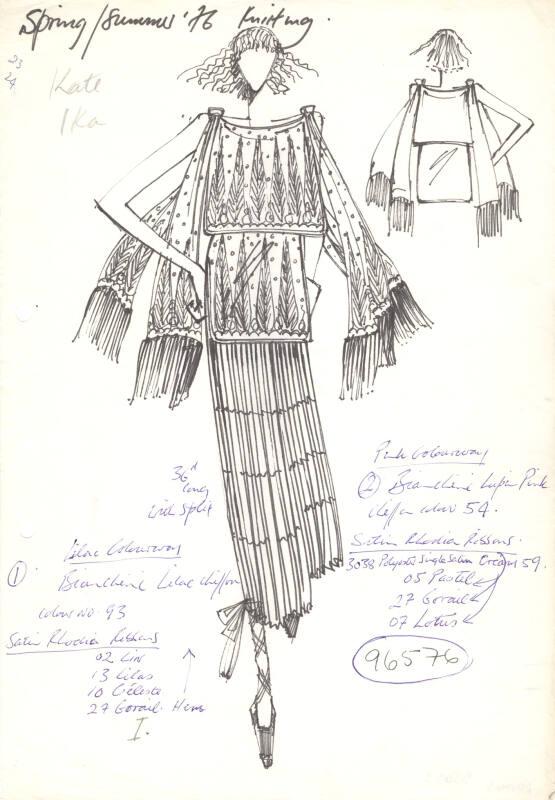 Spring/Summer '76 Knitting.
23
24
Kate
Ika
36"
long
with split
Lilac Colourway
① Bianchini Lilac chiffon
colour no. 93
Satin Rhodia Ribbons
02 Lin
13 Lilas
10 Céleste
27 Corail Hem
I.
Pink Colourway
② Bianchini Lupin Pink
chiffon colour 54.
Satin Rhodia Ribbons.
3038 Polyester Single Satin Cream 59.
05 Pastel
27 Corail
07 Lotus
96576